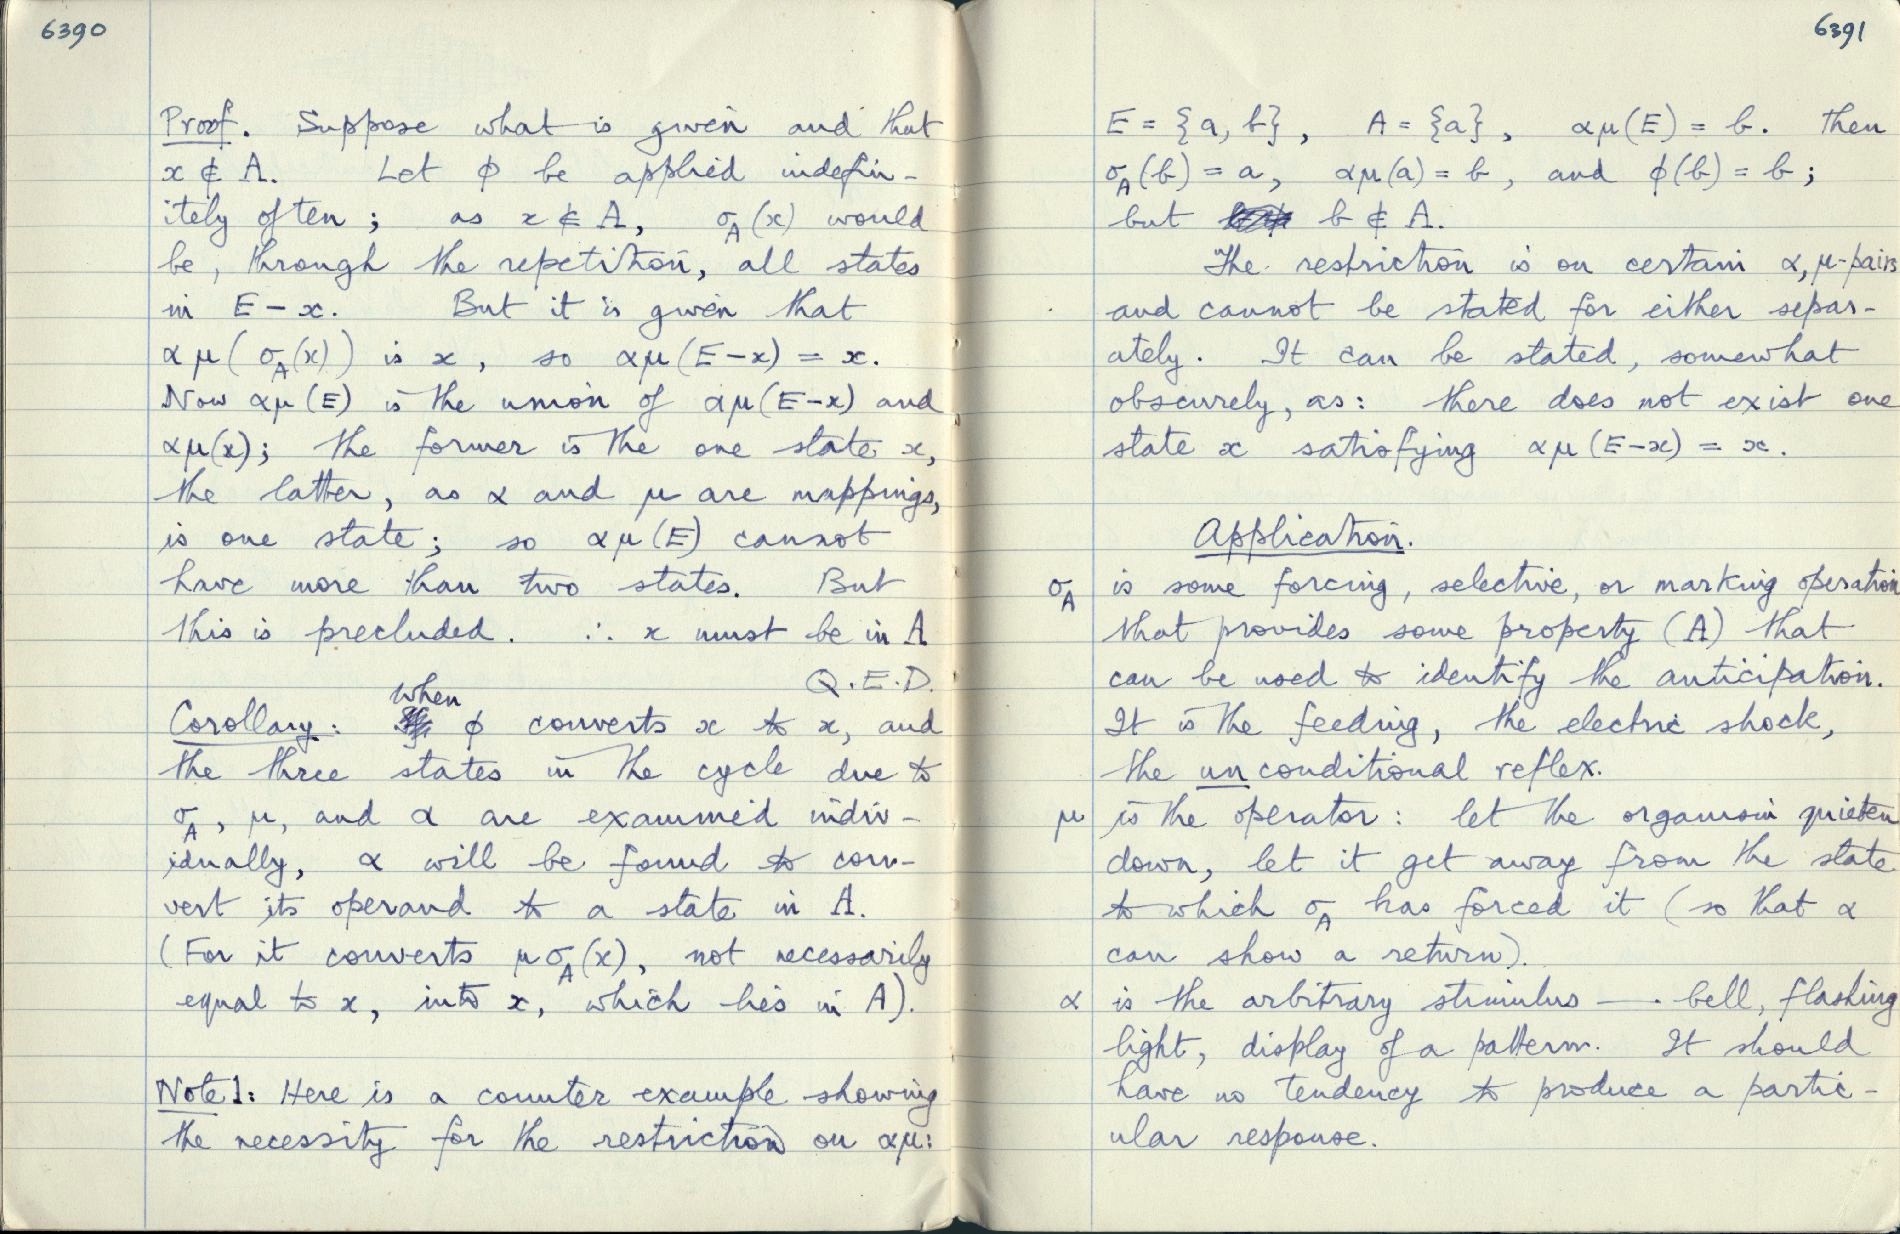 6390
Proof. Suppose what is given and that
x ∉ A. Let ϕ be applied indefin-
itely often; as x ∉ A, σ_A(x) would
be, through the repetition, all states
in E – x. But it is given that
αμ(σ_A(x)) is x, so αμ(E–x) = x.
Now αμ(E) is the union of αμ(E–x) and
αμ(x); the former is the one state x,
the latter, as α and μ are mappings,
is one state; so αμ(E) cannot
have more than two states. But
this is precluded. ∴ x must be in A
Q.E.D.
Corollary: when ϕ converts x to x, and
the three states in the cycle due to
σ_A, μ, and α are examined indiv-
idually, α will be found to con-
vert its operand to a state in A.
(For it converts μσ_A(x), not necessarily
equal to x, into x, which lies in A).
Note 1: Here is a counter example showing
the necessity for the restriction on αμ:
6391
E = {a, b}, A = {a}, αμ(E) = b. Then
σ_A(b) = a, αμ(a) = b, and ϕ(b) = b;
but b ∉ A.
The restriction is on certain α,μ-pairs
and cannot be stated for either separ-
ately. It can be stated, somewhat
obscurely, as: there does not exist one
state x satisfying αμ(E–x) = x.
Application.
σ_A is some forcing, selective, or marking operation
that provides some property (A) that
can be used to identify the anticipation.
It is the feeding, the electric shock,
the unconditional reflex.
μ is the operator: let the organism quieten
down, let it get away from the state
to which σ_A has forced it (so that α
can show a return).
α is the arbitrary stimulus —. bell, flashing
light, display of a pattern. It should
have no tendency to produce a partic-
ular response.